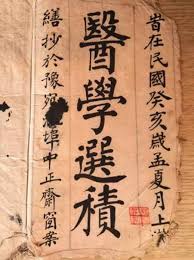 旹在民國癸亥歲孟夏月上
醫學選積
繕抄於豫宛埠中正齋窗案